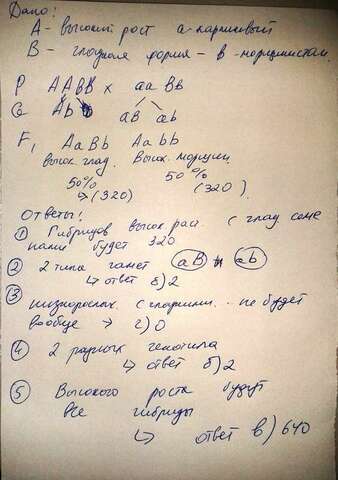 Дано:
А - высокий рост а - карликовый
В - гладкая форма - в - морщинистая.
P AABB x aa Bb
G Ab aB ab
F1 AaBb Aabb
высок. глад. Высок. морщин
50% 50%
↳ (320) (320).
Ответы:
① Гибридов высок. рас. с глад семе
нами будет 320
② 2 типа гамет aB и ab
↳ ответ б) 2
③ низкорослых с гладкими .. не будет
вообще → г) 0
④ 2 разных генотипа
↳ ответ б) 2
⑤ Высокого роста будут
все гибриды
↳ ответ в) 640